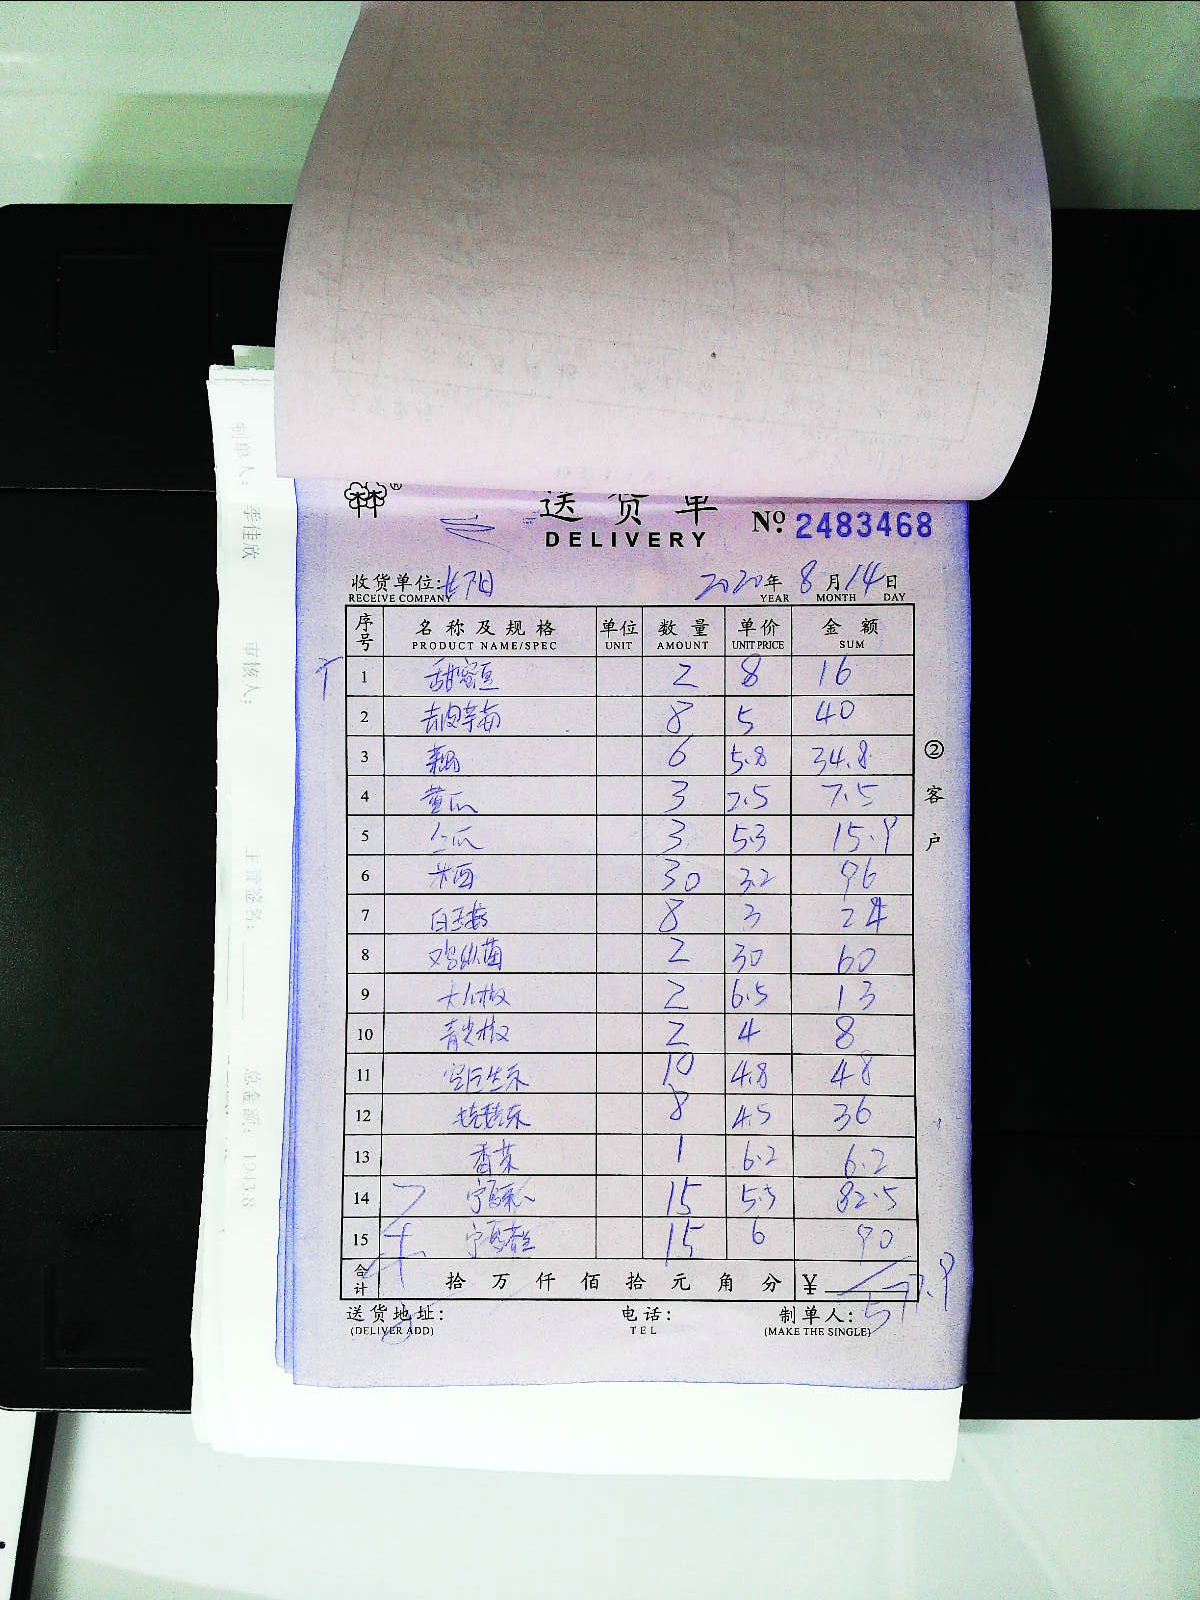 送货单
DELIVERY
№ 2483468
收货单位:
RECEIVE COMPANY
2020年 8月14日
YEAR MONTH DAY
序号 名称及规格 单位 数量 单价 金额
PRODUCT NAME/SPEC UNIT AMOUNT UNIT PRICE SUM
1 甜蜜豆 2 8 16
2 8 5 40
3 6 5.8 34.8
4 黄瓜 3 2.5 7.5
5 3 5.3 15.9
6 30 3.2 96
7 白玉菇 8 3 24
8 鸡纵菌 2 30 60
9 2 6.5 13
10 青尖椒 2 4 8
11 10 4.8 48
12 8 4.5 36
13 香菜 1 6.2 6.2
14 15 5.5 82.5
15 15 6 90
合计 拾万仟佰拾元角分 ¥ 577.9
送货地址: 电话: 制单人:
(DELIVER ADD) TEL (MAKE THE SINGLE)
②客户
制单人: 季佳欣
审核人:
主管签名:
总金额: 1943.8